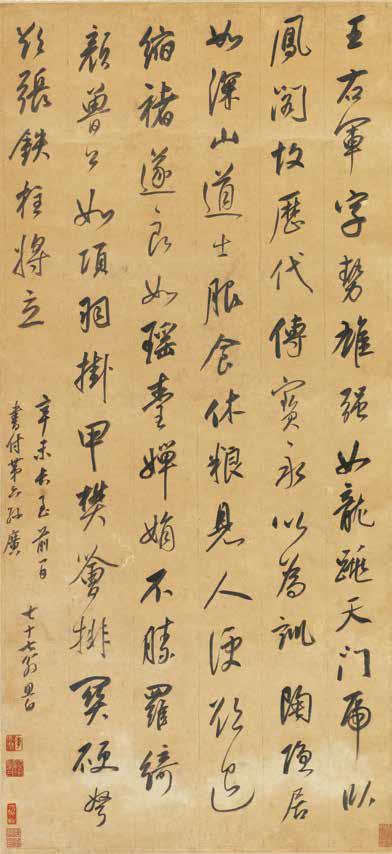 王右軍字勢雄强如龍跳天门虎臥
鳳阁故歷代傳寶永以為訓陶隐居
如深山道士服食休粮見人便欲退
缩褚遂良如瑶臺嬋娟不勝羅綺
顔魯公如項羽掛甲樊噲排突硬弩
欲張鉄柱將立
辛未長至前一日
書付第六孙廣
七十七翁思白